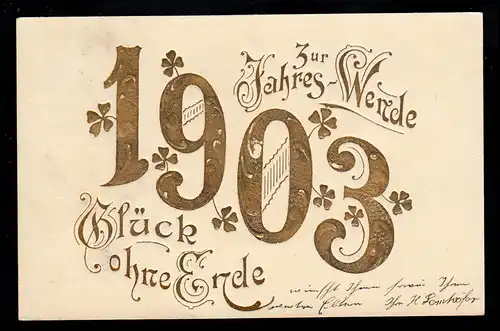 1903
Zur
Jahres-Wende
Glück
ohne Ende
wünscht Ihnen sowie Ihren
werten Eltern Ihr H